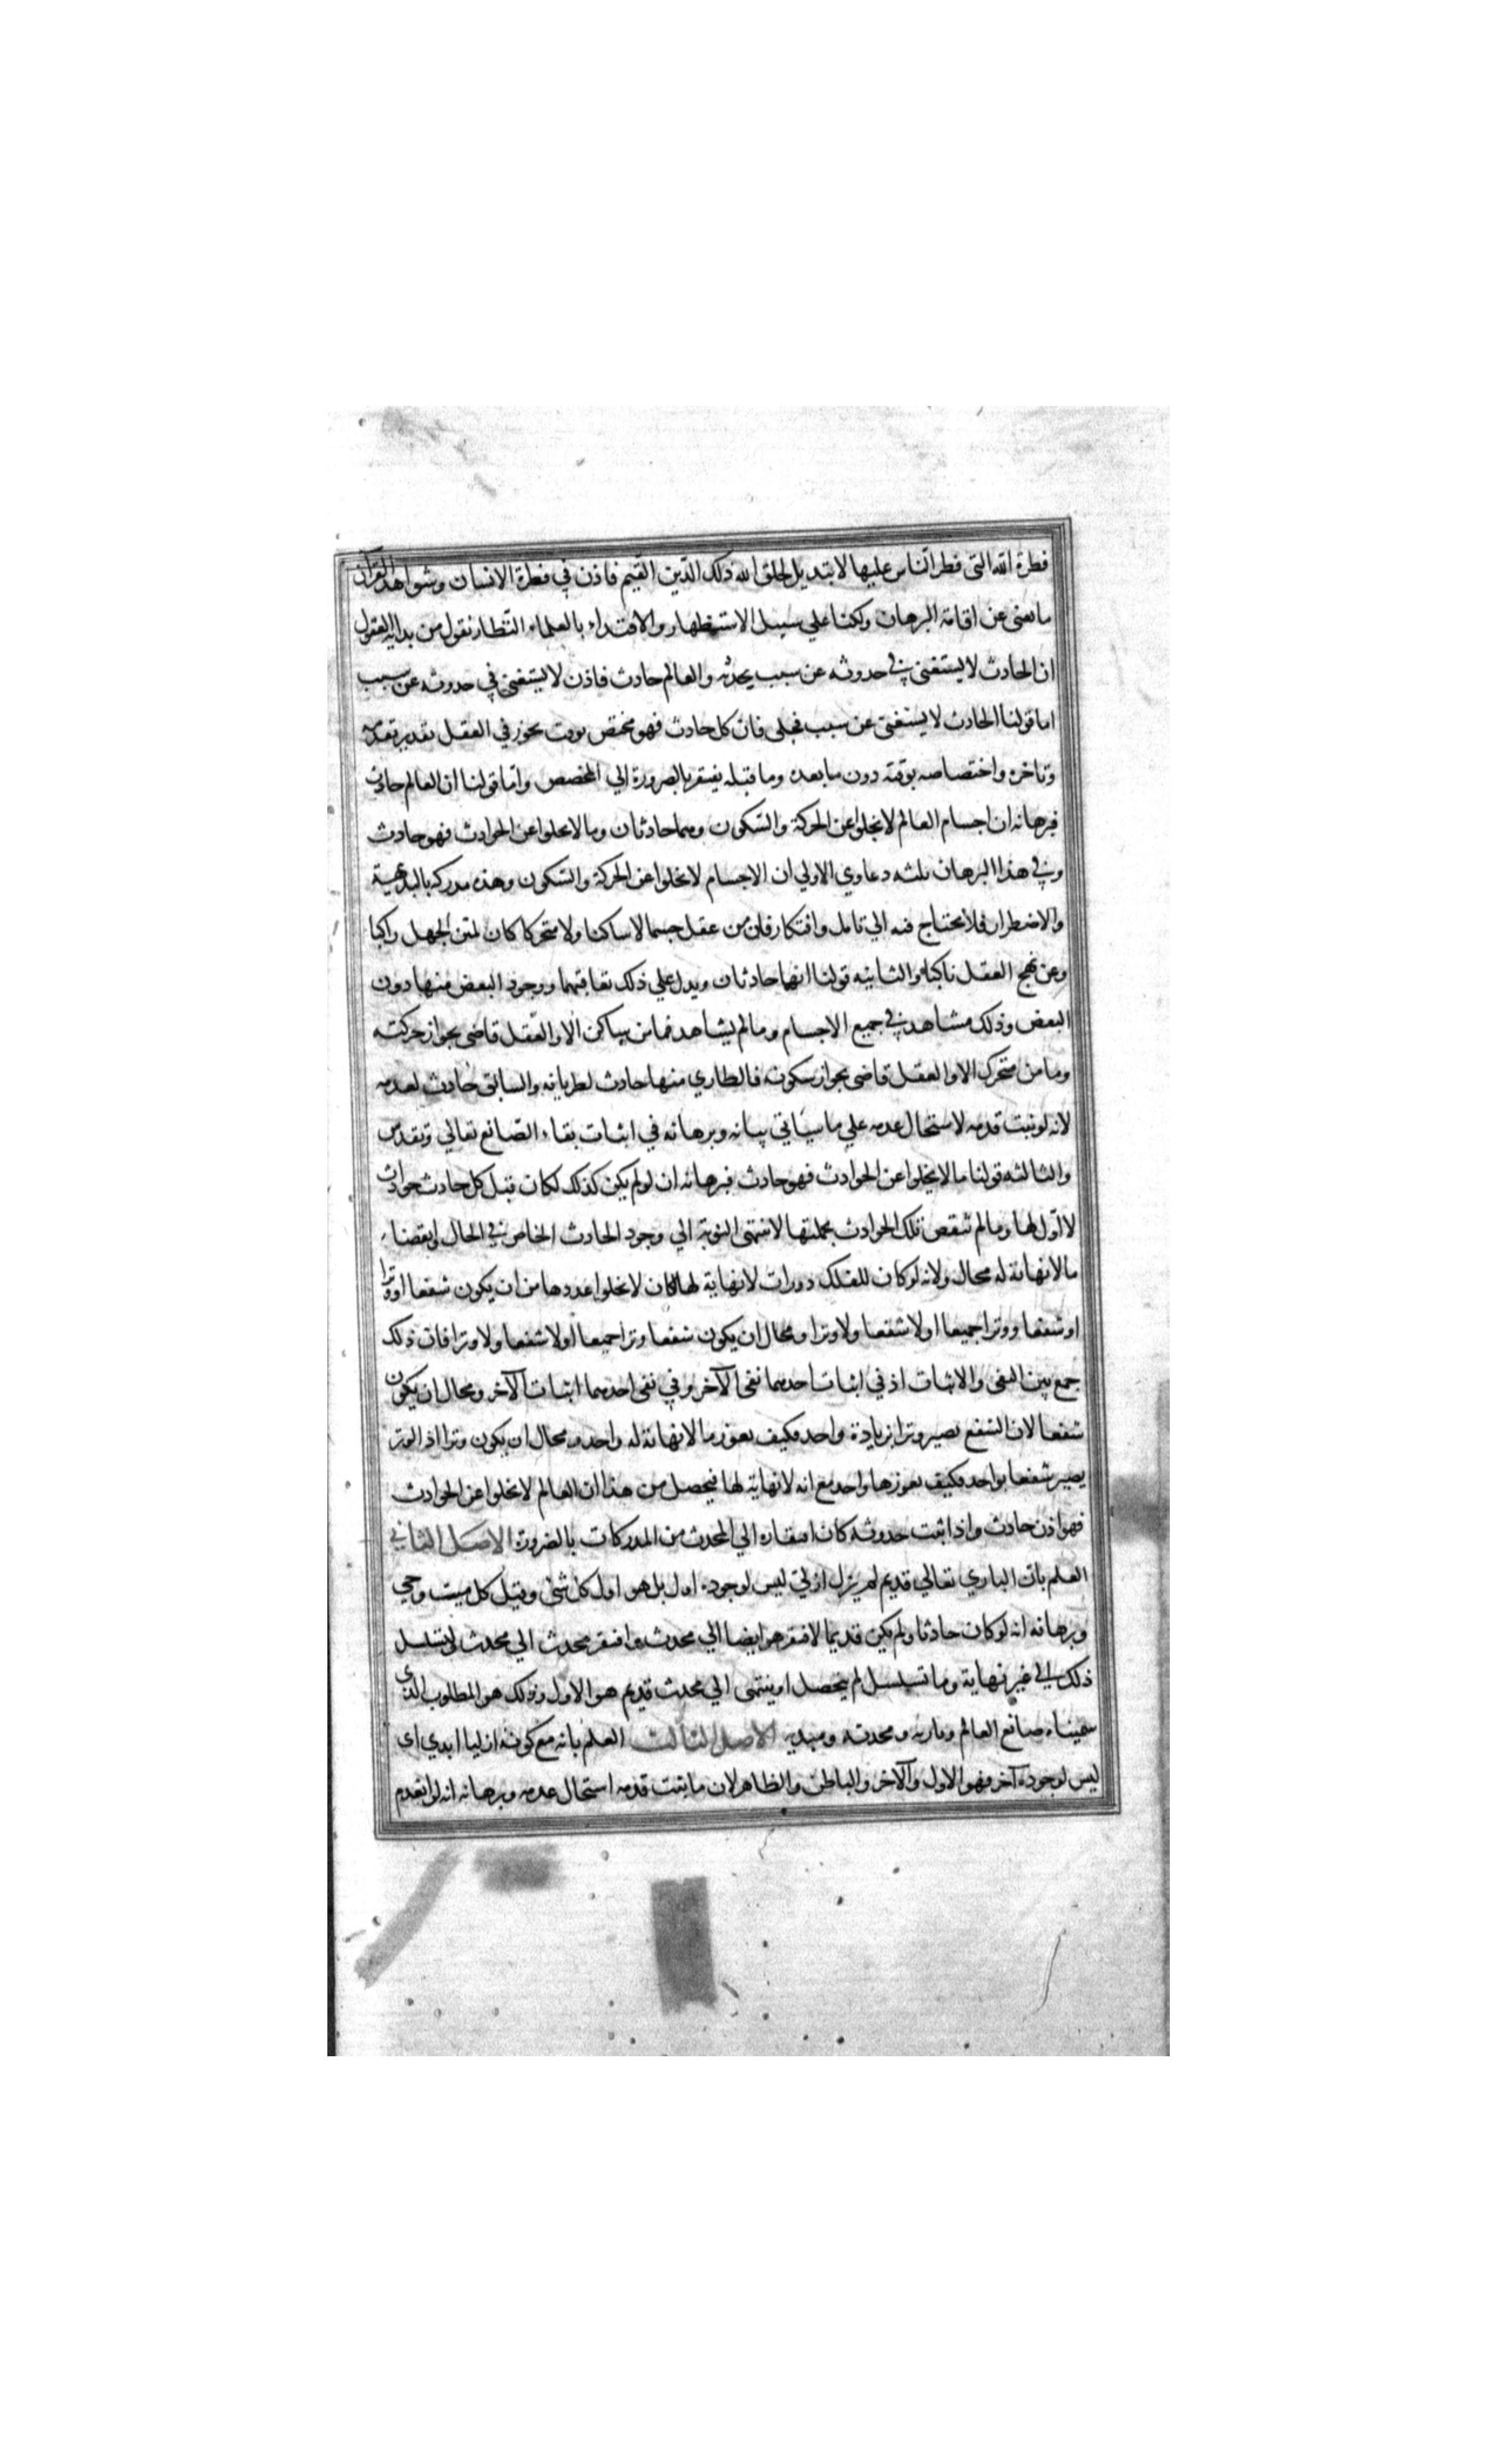 فطرة الله التى فطر الناس عليها لا تبديل لخلق الله ذلك الدّين القيم فاذن في فطرة الانسان وشواهد القرآن
ما يغنى عن اقامة البرهان ولكنا علي سبيل الاستظهار والاقتداء بالعلماء النّظار نقول من بداية العقول
ان الحادث لا يستغنى في حدوثه عن سبب يحدثه والعالم حادث فاذن لا يستغنى في حدوثه عن سبب
اما قولنا الحادث لا يستغنى عن سبب فجلى فان كل حادث فهو مختص بوقت يجوز في العقل تقدير تقديمه
وتاخره واختصاصه بوقته دون ما بعده وما قبله يفتقر بالضرورة الي المخصص واما قولنا ان العالم حادث
فبرهانه ان اجسام العالم لا تخلوا عن الحركة والسّكون وهما حادثان وما لا يخلوا عن الحوادث فهو حادث
وفي هذا البرهان ثلثه دعاوي الاولي ان الاجسام لا تخلوا عن الحركة والسّكون وهذه مدركه بالبديهية
والاضطرار فلا يحتاج فيه الي تامل وافتكار فان من عقل جسما لا ساكنا ولا متحركا كان لمتن الجهل راكبا
وعن نهج العقل ناكبا والثانيه قولنا انهما حادثان ويدل علي ذلك تعاقبهما ووجود البعض منها دون
البعض وذلك مشاهد في جميع الاجسام وما لم يشاهد فما من ساكن الا والعقل قاضى بجواز حركته
وما من متحرك الا والعقل قاضى بجواز سكونه فالطاري منها حادث لطريانه والسابق حادث لعدمه
لانه لو ثبت قدمه لاستحال عدمه علي ما سياتي بيانه وبرهانه في اثبات بقاء الصّانع تعالي وتقدس
والثالثه قولنا ما لا يخلوا عن الحوادث فهو حادث فبرهانه ان لو لم يكن كذلك لكان قبل كل حادث حوادث
لا اوّل لها وما لم تنقض تلك الحوادث بجملتها لا تنتهى النوبة الي وجود الحادث الخاص في الحال وانقضاء
ما لا نهاية له محال ولانه لو كان للفلك دورات لا نهاية لها لكان لا يخلوا عددها من ان يكون شفعا او وترا
او شفعا ووترا جميعا او لا شفعا ولا وترا ومحال ان يكون شفعا وترا جميعا او لا شفعا ولا وترا فان ذلك
جمع بين النفى والاثبات اذ في اثبات احدهما نفى الآخر وفي نفى احدهما اثبات الآخر ومحال ان يكون
شفعا لان الشفع يصير وترا بزيادة واحد فكيف يعوز ما لا نهاية له واحد ومحال ان يكون وترا اذ الوتر
يصير شفعا بواحد فكيف يعوزها واحد مع انه لا نهاية لها فيحصل من هذا ان العالم لا يخلوا عن الحوادث
فهو اذن حادث واذا ثبت حدوثه كان افتقاره الي المحدث من المدركات بالضرورة الاصل الثاني
العلم بان الباري تعالي قديم لم يزل ازلىّ ليس لوجوده اول بل هو اول كل شئ وقبل كل ميت وحي
وبرهانه انه لو كان حادثا ولم يكن قديما لافتقر هو ايضا الي محدث وافتقر محدث الي محدث ولتسلسل
ذلك الي غير نهاية وما تسلسل لم يتحصل او ينتهى الي محدث قديم هو الاول وذلك هو المطلوب الذى
سميناه صانع العالم وباريه ومحدثه ومبديه الاصل الثالث العلم بانه مع كونه ازليا ابدي اى
ليس لوجوده آخر فهو الاول والآخر والباطن والظاهر لان ما ثبت قدمه استحال عدمه وبرهانه انه لو انعدم